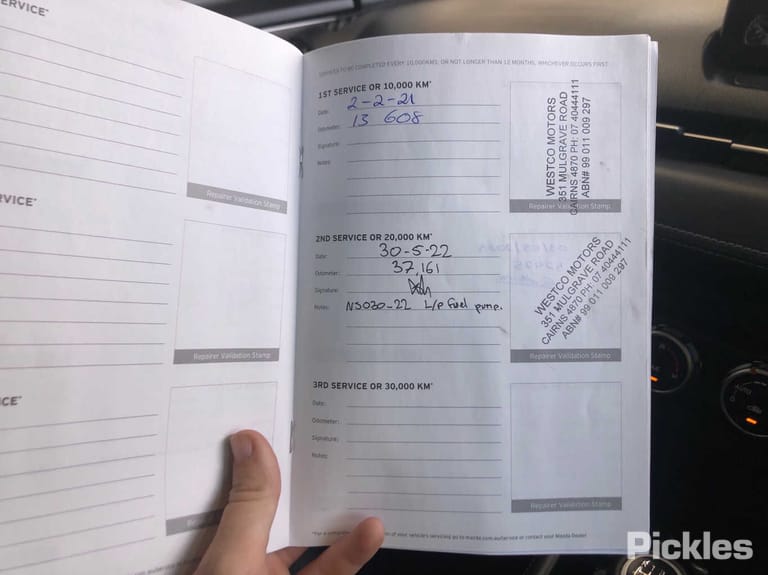 ERVICE*
Repairer Validation Stamp
RVICE*
Repairer Validation Stamp
ICE*
SERVICES TO BE COMPLETED EVERY 10,000KMS, OR NOT LONGER THAN 12 MONTHS, WHICHEVER OCCURS FIRST.
1ST SERVICE OR 10,000 KM*
Date: 2-2-21
Odometer: 13 608
Signature:
Notes:
WESTCO MOTORS
351 MULGRAVE ROAD
CAIRNS 4870 PH: 07 40444111
ABN# 99 011 009 297
Repairer Validation Stamp
2ND SERVICE OR 20,000 KM*
Date: 30-5-22
Odometer: 37,161
Signature:
Notes: NS030-22 L/p fuel pump.
WESTCO MOTORS
351 MULGRAVE ROAD
CAIRNS 4870 PH: 07 40444111
ABN# 99 011 009 297
Repairer Validation Stamp
3RD SERVICE OR 30,000 KM*
Date:
Odometer:
Signature:
Notes:
Repairer Validation Stamp
*For a comple of your vehicle's servicing go to mazda.com.au/service or contact your Mazda Dealer
AUTO
Pickles